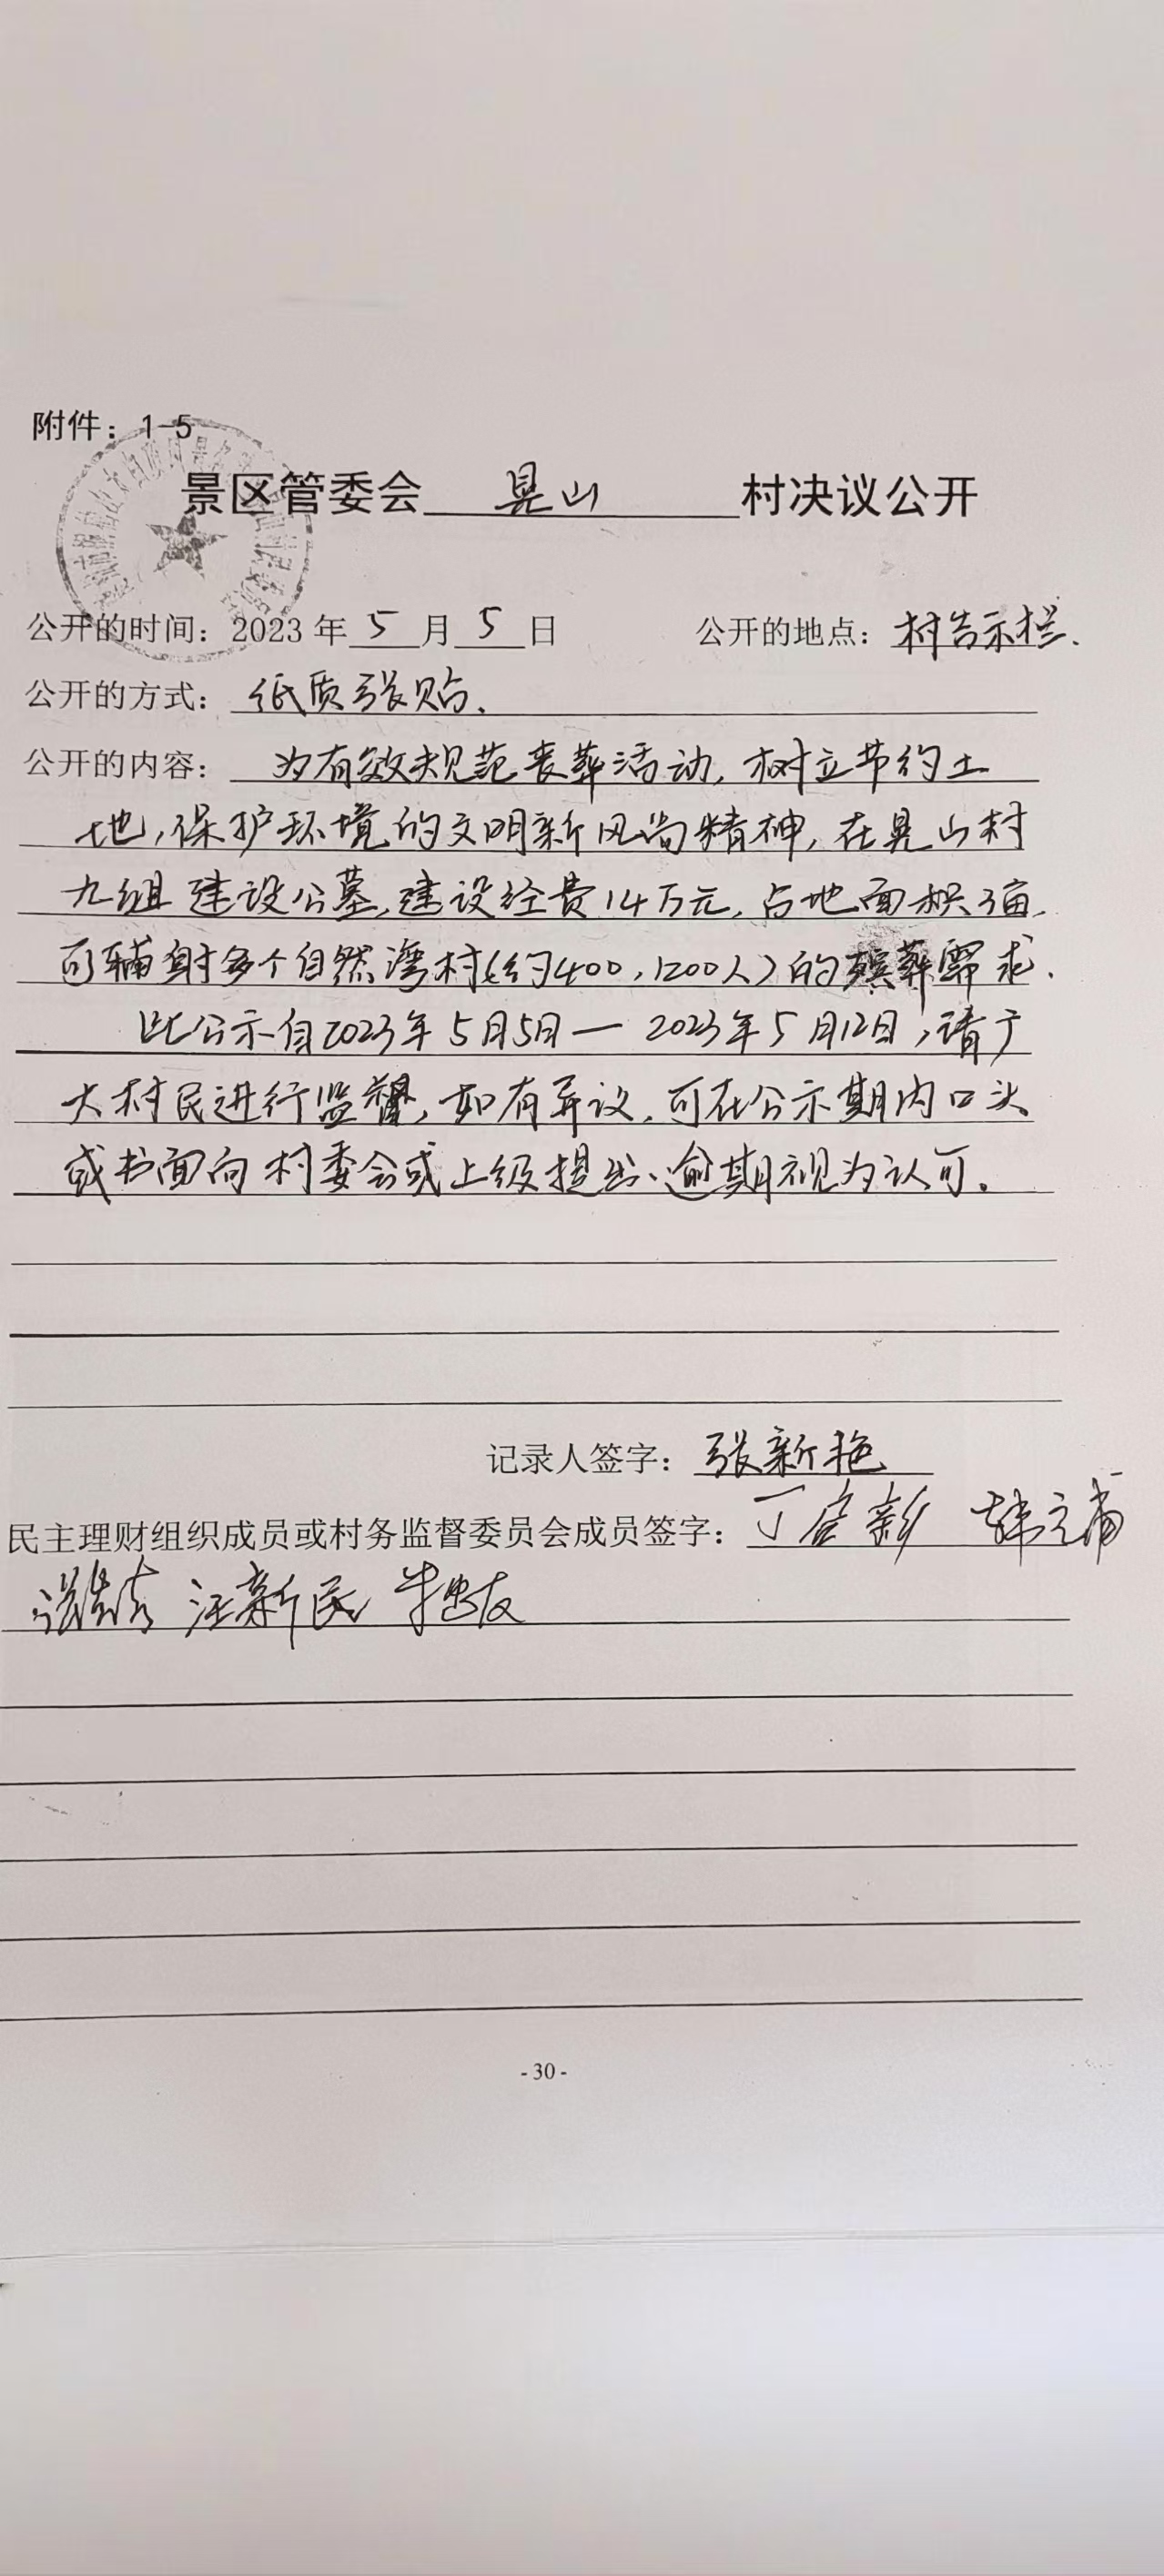 附件：1-5
景区管委会 晃山 村决议公开
公开的时间：2023年 5 月 5 日 公开的地点：村告示栏.
公开的方式：纸质张贴.
公开的内容：为有效规范丧葬活动，树立节约土
地，保护环境的文明新风尚精神，在晃山村
九组建设公墓，建设经费14万元，占地面积3亩，
可辅射多个自然湾村（约400，1200人）的殡葬需求.
此公示自2023年5月5日一2023年5月12日，请于
大村民进行监督，如有异议，可在公示期内口头
或书面向村委会或上级提出、逾期视为认可。
记录人签字：张新艳
民主理财组织成员或村务监督委员会成员签字：
汪新民
-30-